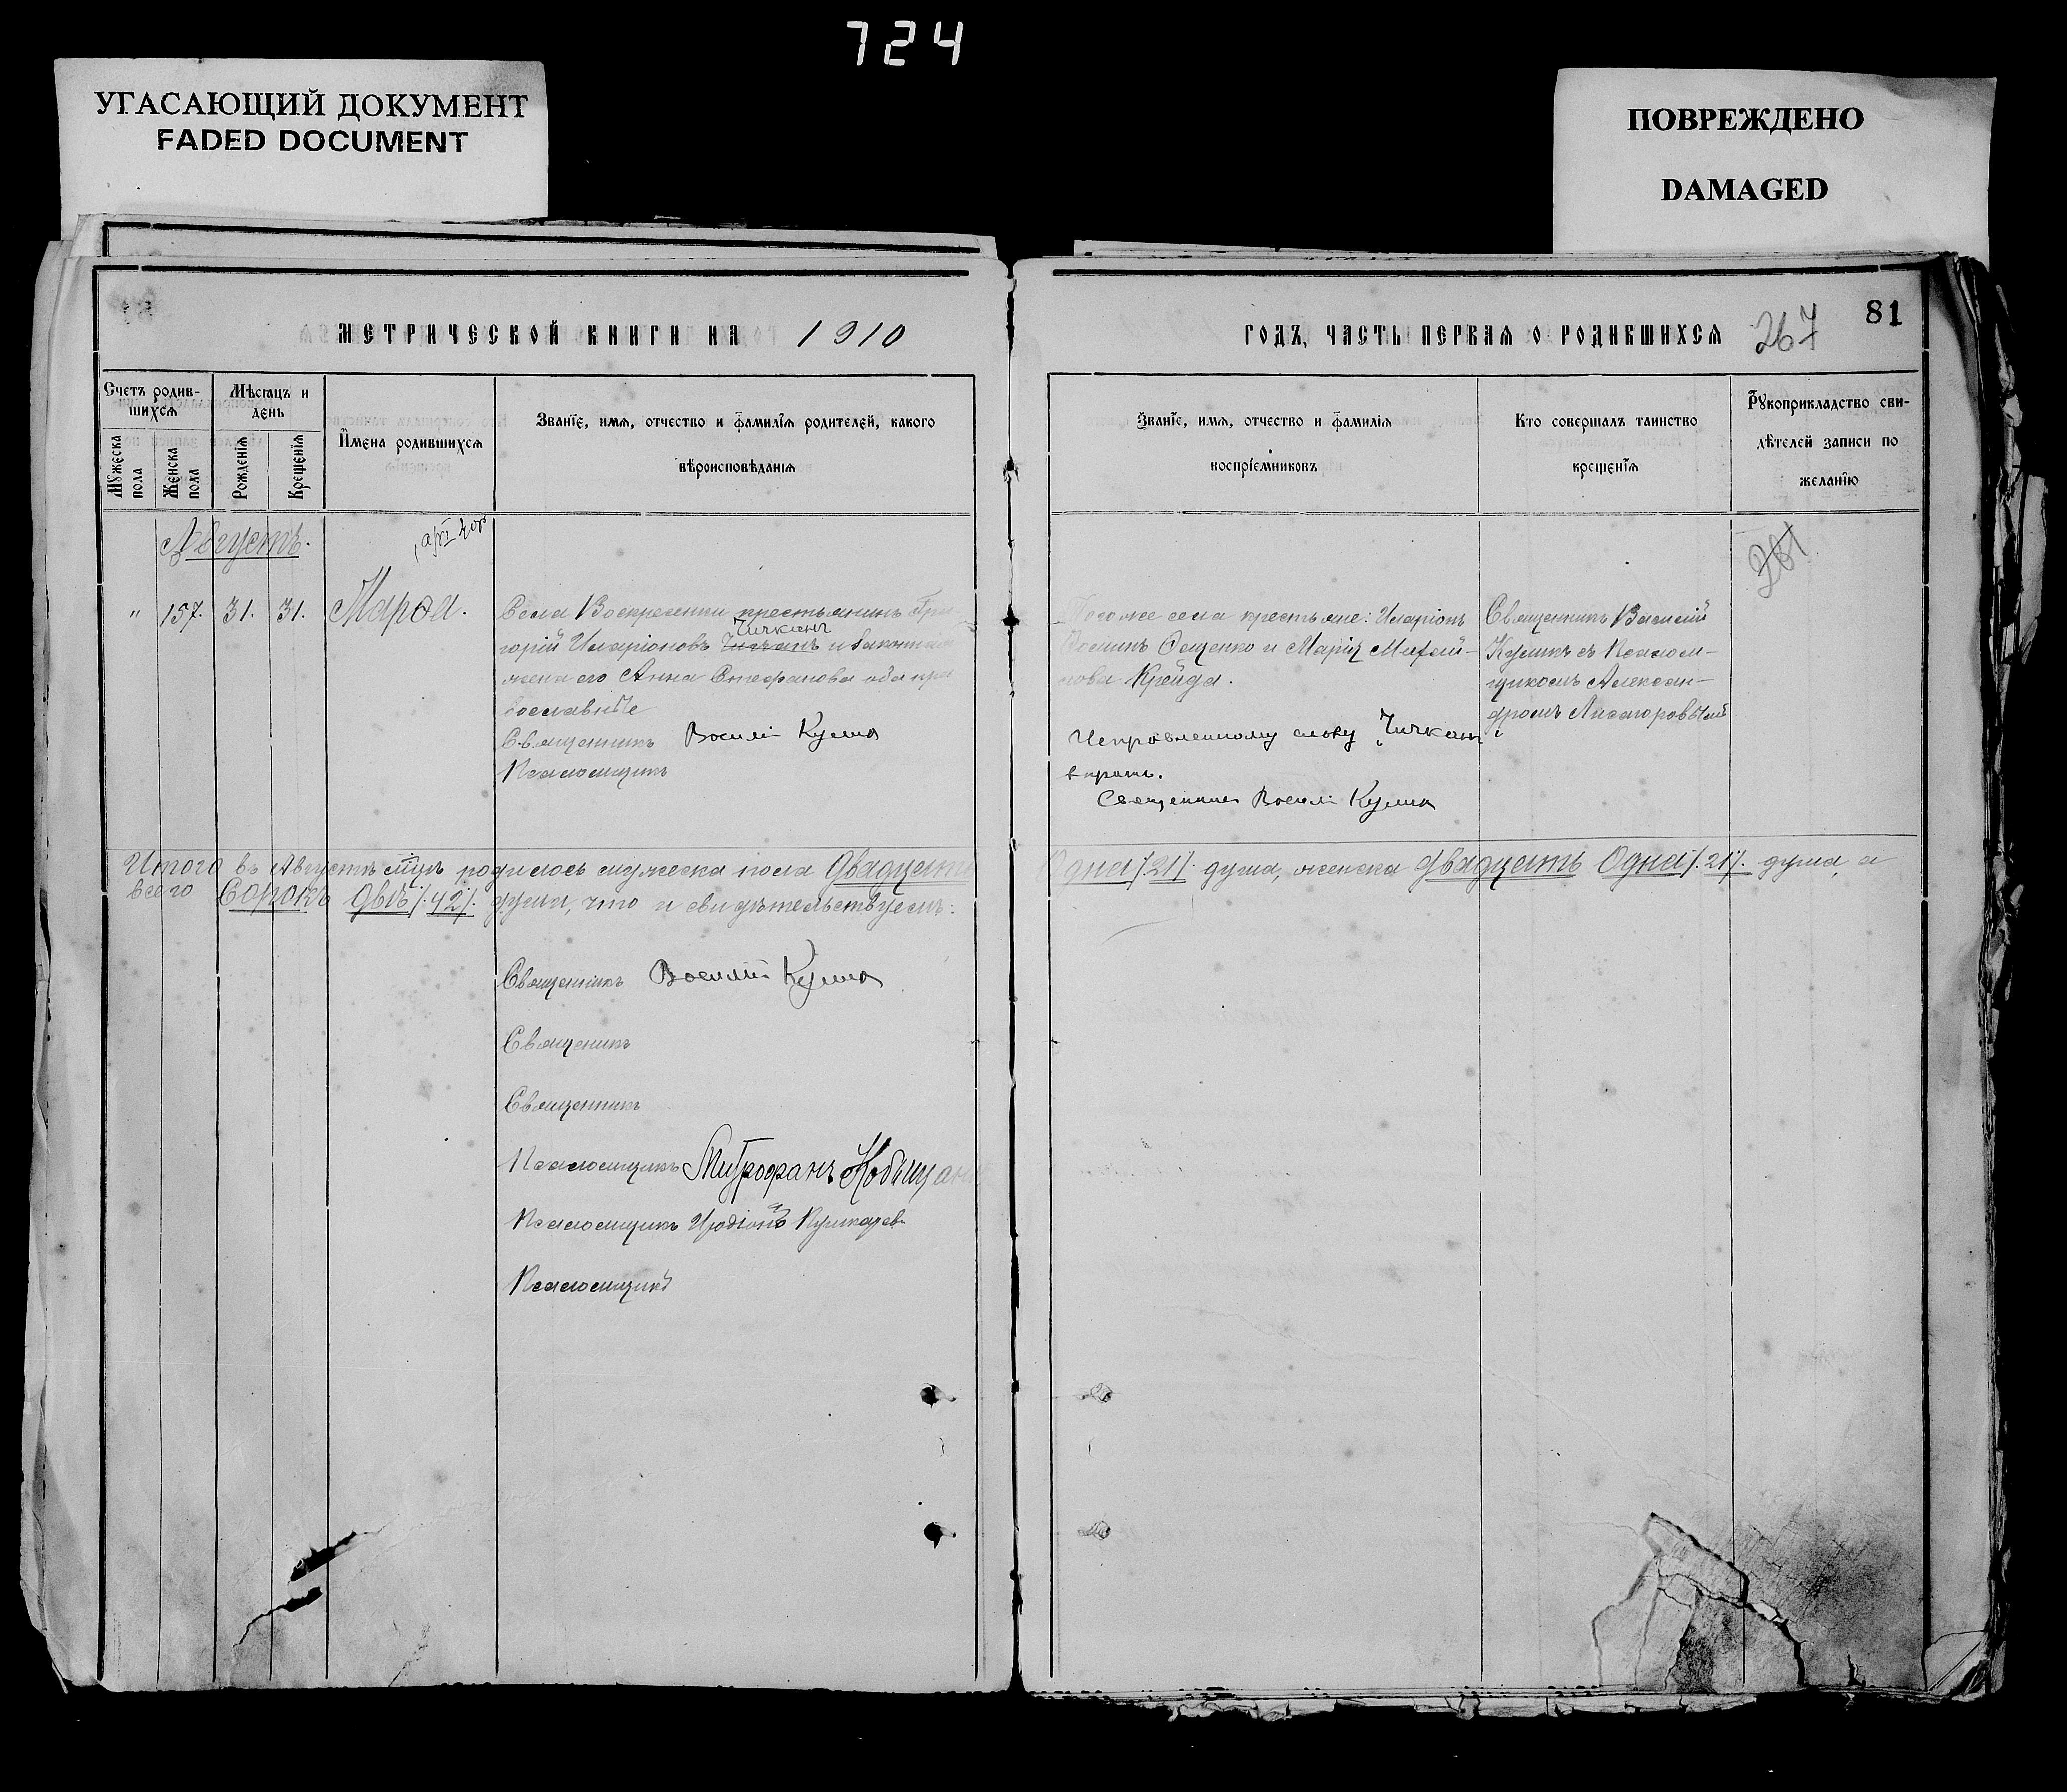 724
УГАСАЮЩИЙ ДОКУМЕНТ
FADED DOCUMENT
ПОВРЕЖДЕНО
DAMAGED
МЕТРИЧЕСКОЙ КНИГИ НА 1910
ГОДЪ, ЧАСТЬ ПЕРВАЯ О РОДИВШИХСЯ 267 81
Счетъ родив-
шихся
Мужеска
пола
Женска
пола
Мѣсяцъ и
день
Рожденїя
Крещенїя
Имена родившихся
Званїе, имя, отчество и фамилїя родителей, какого
вѣроисповѣданїя
Званїе, имя, отчество и фамилїя
воспрїемниковъ
Кто совершалъ таинство
крещенїя
Рукоприкладство сви-
дѣтелей записи по
желанїю
Августъ.
„ 157. 31. 31. Марѳа.
Села Воскресенки крестьянинъ Гри
Чичканъ
горій Иларіоновъ и законная
жена его Анна Стефанова оба пра
вославные
Священникъ Василій Кулик
Псаломщикъ
Того же села крестьяне: Иларіонъ
Ященко и Марія
Крейда.
Исправленному слову „Чичканъ“
вѣрить.
Священникъ Василій Кулик
Священникъ Василій
Куликъ съ Псалом-
щикомъ Алексан-
дромъ
261
Итого въ Августѣ мцѣ родилось мужеска пола Двадцать Одна /.21/. душа, женска Двадцать Одна /.21/. душа, а
всего Сорокъ Двѣ /.42/. души, что и свидѣтельствуемъ:
Священникъ Василій Кулик
Священникъ
Священникъ
Псаломщикъ Митрофанъ Кобищанъ
Псаломщикъ Иродіонъ Пушкарев
Псаломщикъ